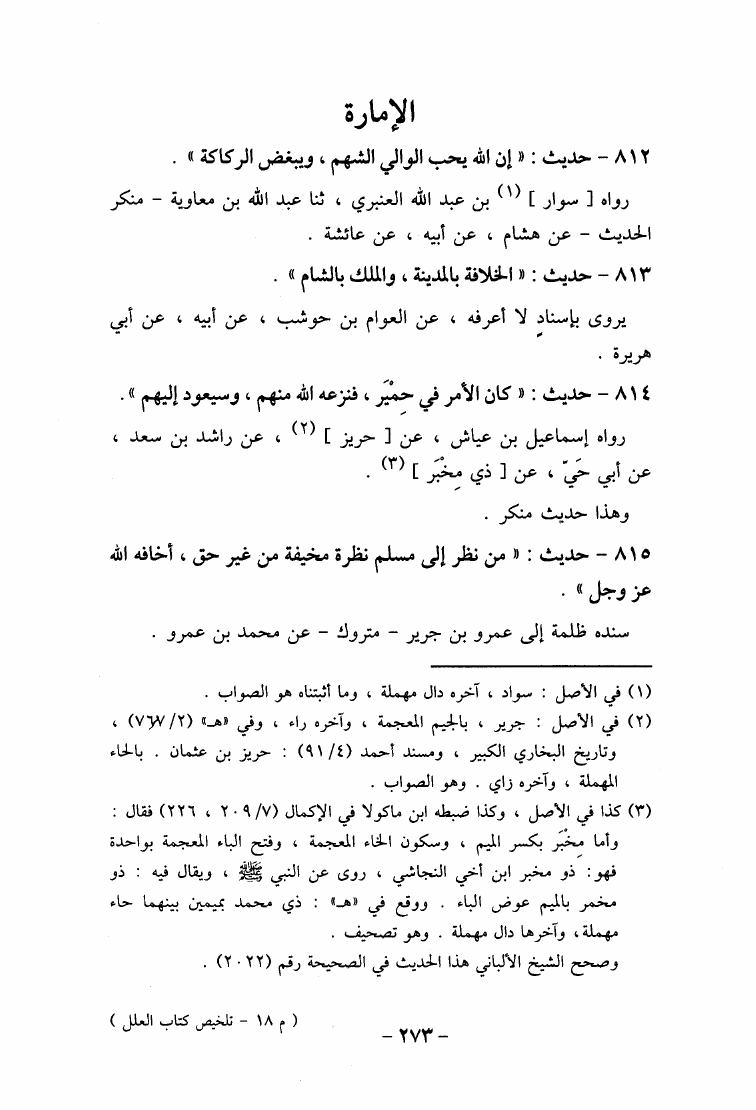 الإمارة
٨١٢ - حديث : « إن الله يحب الوالي الشهم ، ويبغض الركاكة » .
رواه [ سوار ] (١) بن عبد الله العنبري ، ثنا عبد الله بن معاوية - منكر
الحديث - عن هشام ، عن أبيه ، عن عائشة .
٨١٣ - حديث : « الخلافة بالمدينة ، والملك بالشام » .
يروى بإسنادٍ لا أعرفه ، عن العوام بن حوشب ، عن أبيه ، عن أبي
هريرة .
٨١٤ - حديث : « كان الأمر في حِمْيَر ، فنزعه الله منهم ، وسيعود إليهم » .
رواه إسماعيل بن عياش ، عن [ حريز ] (٢) ، عن راشد بن سعد ،
عن أبي حَيّ ، عن [ ذي مِخْبَر ] (٣) .
وهذا حديث منكر .
٨١٥ - حديث : « من نظر إلى مسلم نظرة مخيفة من غير حق ، أخافه الله
عز وجل » .
سنده ظلمة إلى عمرو بن جرير - متروك - عن محمد بن عمرو .
(١) في الأصل : سواد ، آخره دال مهملة ، وما أثبتناه هو الصواب .
(٢) في الأصل : جرير ، بالجيم المعجمة ، وآخره راء ، وفي «هـ» (٧٦٧/٢) ،
وتاريخ البخاري الكبير ، ومسند أحمد (٩١/٤) : حريز بن عثمان . بالحاء
المهملة ، وآخره زاي . وهو الصواب .
(٣) كذا في الأصل ، وكذا ضبطه ابن ماكولا في الإكمال (٢٠٩/٧ ، ٢٢٦) فقال :
وأما مِخْبَر بكسر الميم ، وسكون الخاء المعجمة ، وفتح الباء المعجمة بواحدة
فهو: ذو مخبر ابن أخي النجاشي ، روى عن النبي ﷺ ، ويقال فيه : ذو
مخمر بالميم عوض الباء . ووقع في «هـ» : ذي محمد بميمين بينهما حاء
مهملة، وآخرها دال مهملة . وهو تصحيف .
وصحح الشيخ الألباني هذا الحديث في الصحيحة رقم (٢٠٢٢) .
( م ١٨ - تلخيص كتاب العلل )
- ٢٧٣ -